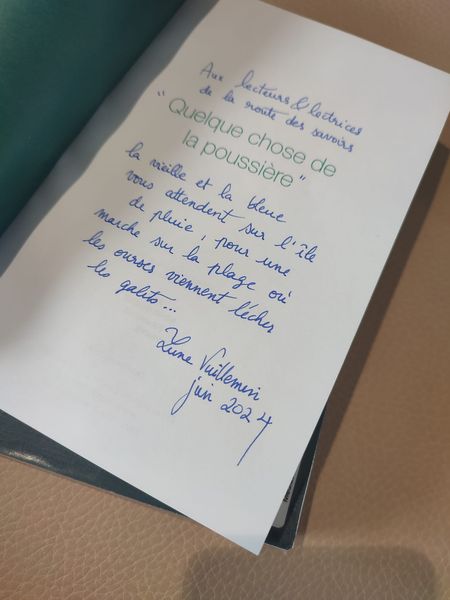 Aux lecteurs & lectrices
de la route des savoirs
"Quelque chose de
la poussière"
la vieille et la bleue
vous attendent sur l'île
de pluie, pour une
marche sur la plage où
les ourses viennent lécher
les galets...
Lune Vuillemin
juin 2024